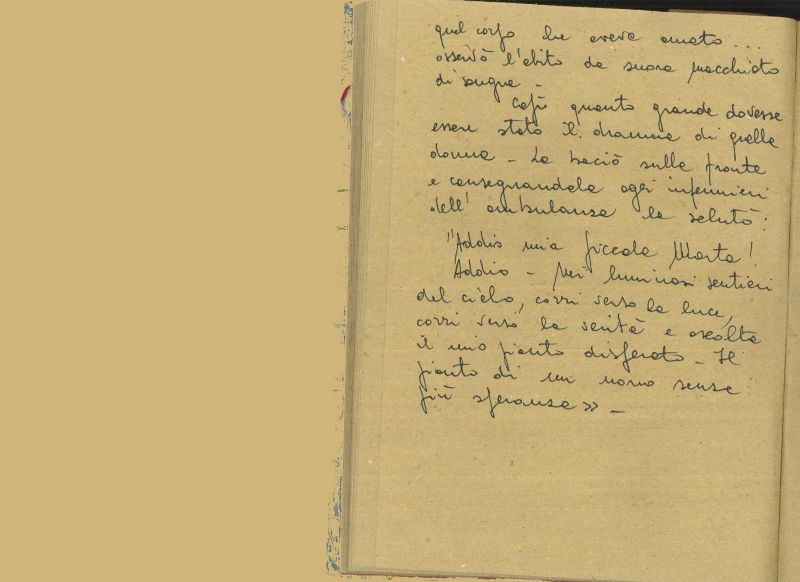 quel corpo che aveva amato...
osservò l'abito da suora macchiato
di sangue -
Capì quanto grande dovesse
essere stato il dramma di quella
donna - La baciò sulla fronte
e consegnandola agli infermieri
dell'ambulanza la salutò:
"Addio mia piccola Marta!
Addio - Nei luminosi sentieri
del cielo, corri verso la luce,
corri verso la verità e ascolta
il mio pianto disperato - Il
pianto di un uomo senza
più speranza» -